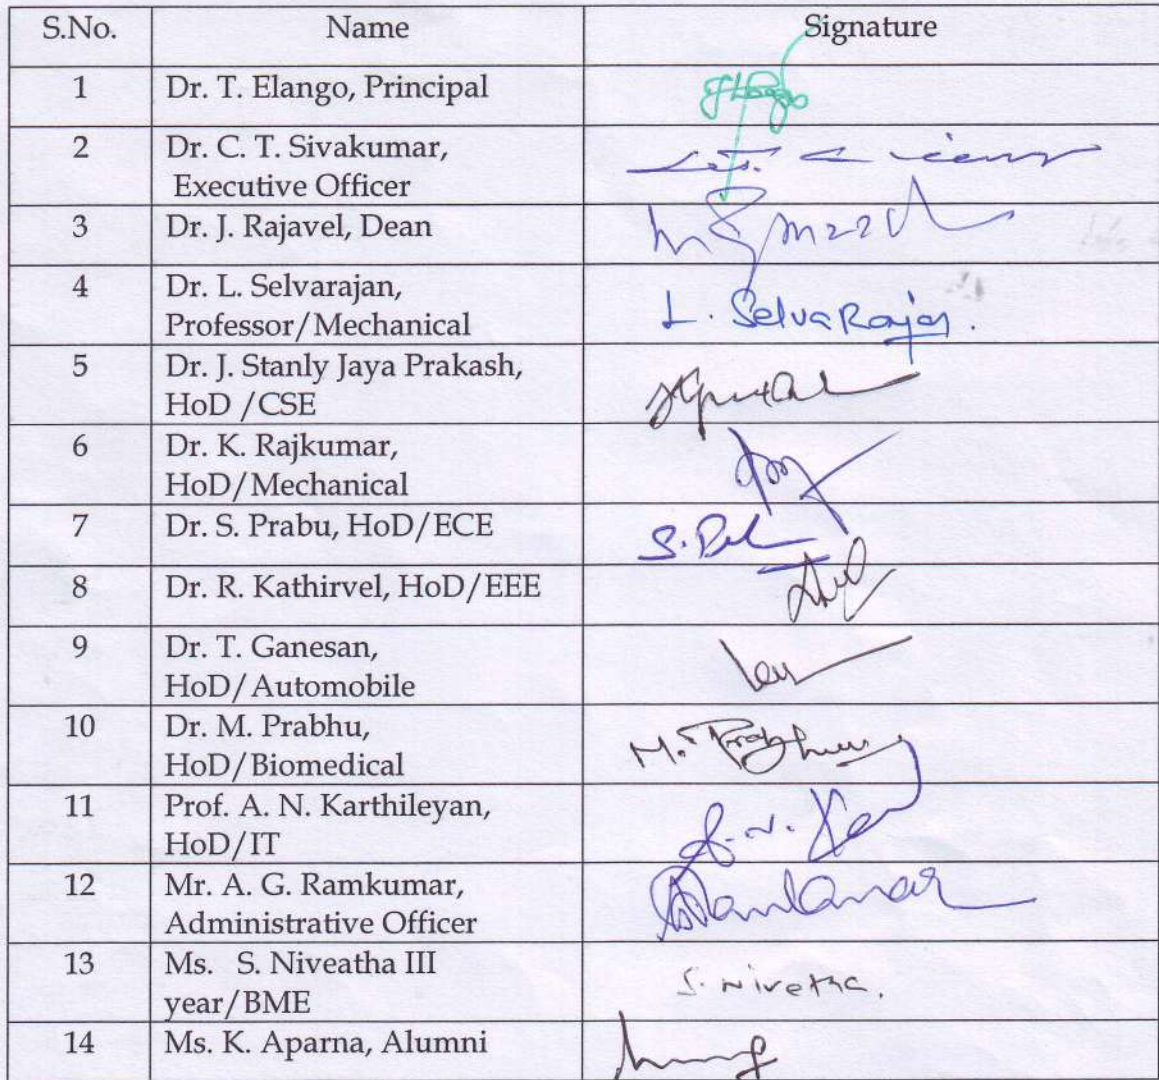 S.No. Name Signature
1 Dr. T. Elango, Principal
2 Dr. C. T. Sivakumar,
Executive Officer
3 Dr. J. Rajavel, Dean
4 Dr. L. Selvarajan,
Professor/Mechanical L. SelvaRajan.
5 Dr. J. Stanly Jaya Prakash,
HoD /CSE
6 Dr. K. Rajkumar,
HoD/Mechanical
7 Dr. S. Prabu, HoD/ECE
8 Dr. R. Kathirvel, HoD/EEE
9 Dr. T. Ganesan,
HoD/Automobile
10 Dr. M. Prabhu,
HoD/Biomedical M. Prabhu
11 Prof. A. N. Karthileyan,
HoD/IT
12 Mr. A. G. Ramkumar,
Administrative Officer
13 Ms. S. Niveatha III
year/BME S. Nivetha.
14 Ms. K. Aparna, Alumni